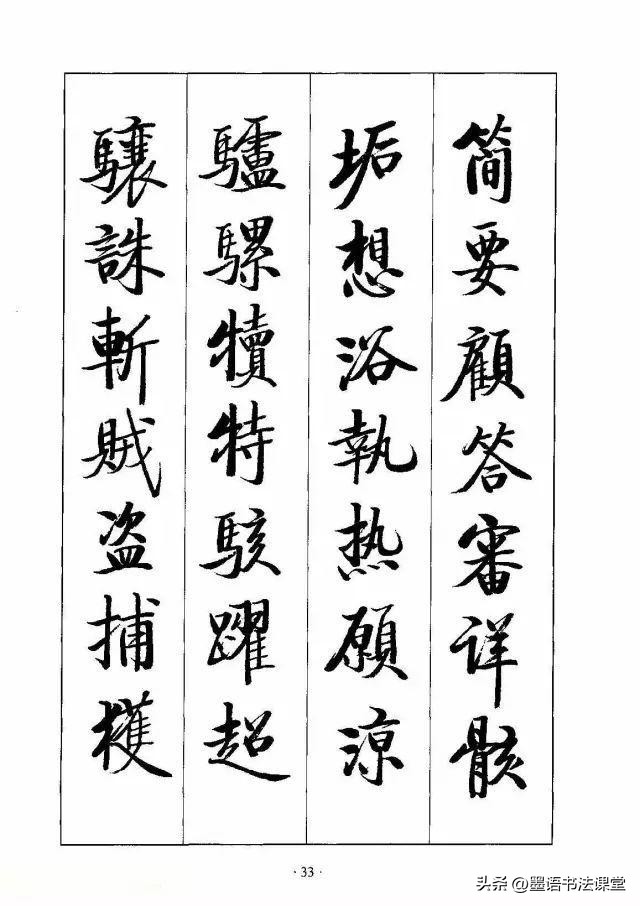 简要顧答審详骸
垢想浴執热願涼
驢騾犢特駭躍超
驤誅斬賊盗捕獲
·33·
头条@墨语书法课堂